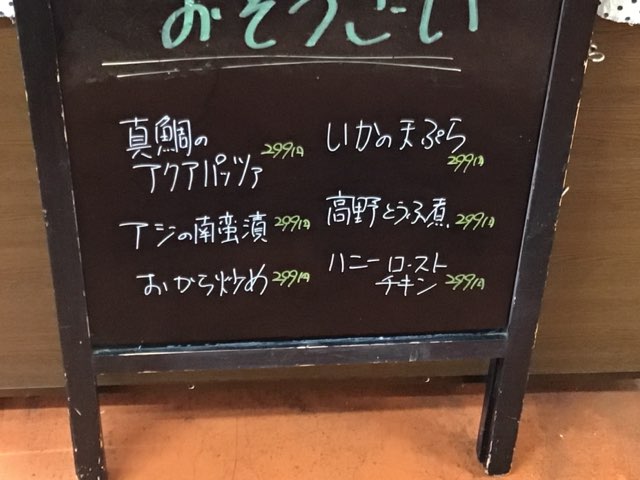 おそうざい
真鯛の
アクアパッツァ 299円
アジの南蛮漬 299円
おから炒め 299円
いかの天ぷら
299円
高野とうふ煮 299円
ハニーロースト
チキン 299円